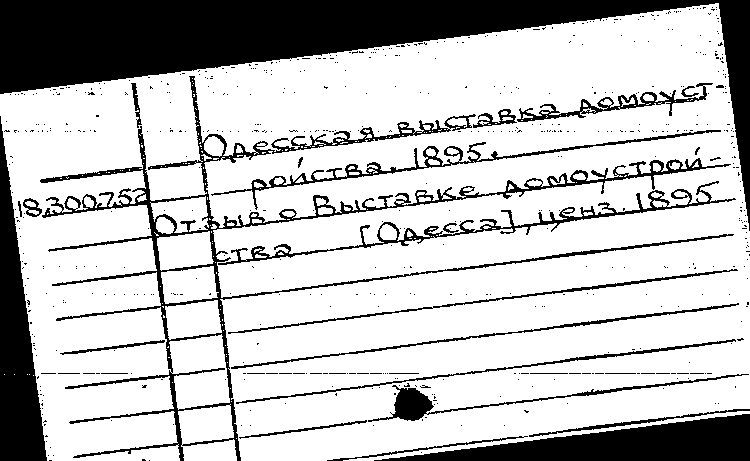 Одесская выставка домоуст-
ройства. 1895.
18.300.7.52
Отзыв о Выставке домоустрой-
ства [Одесса], ценз. 1895